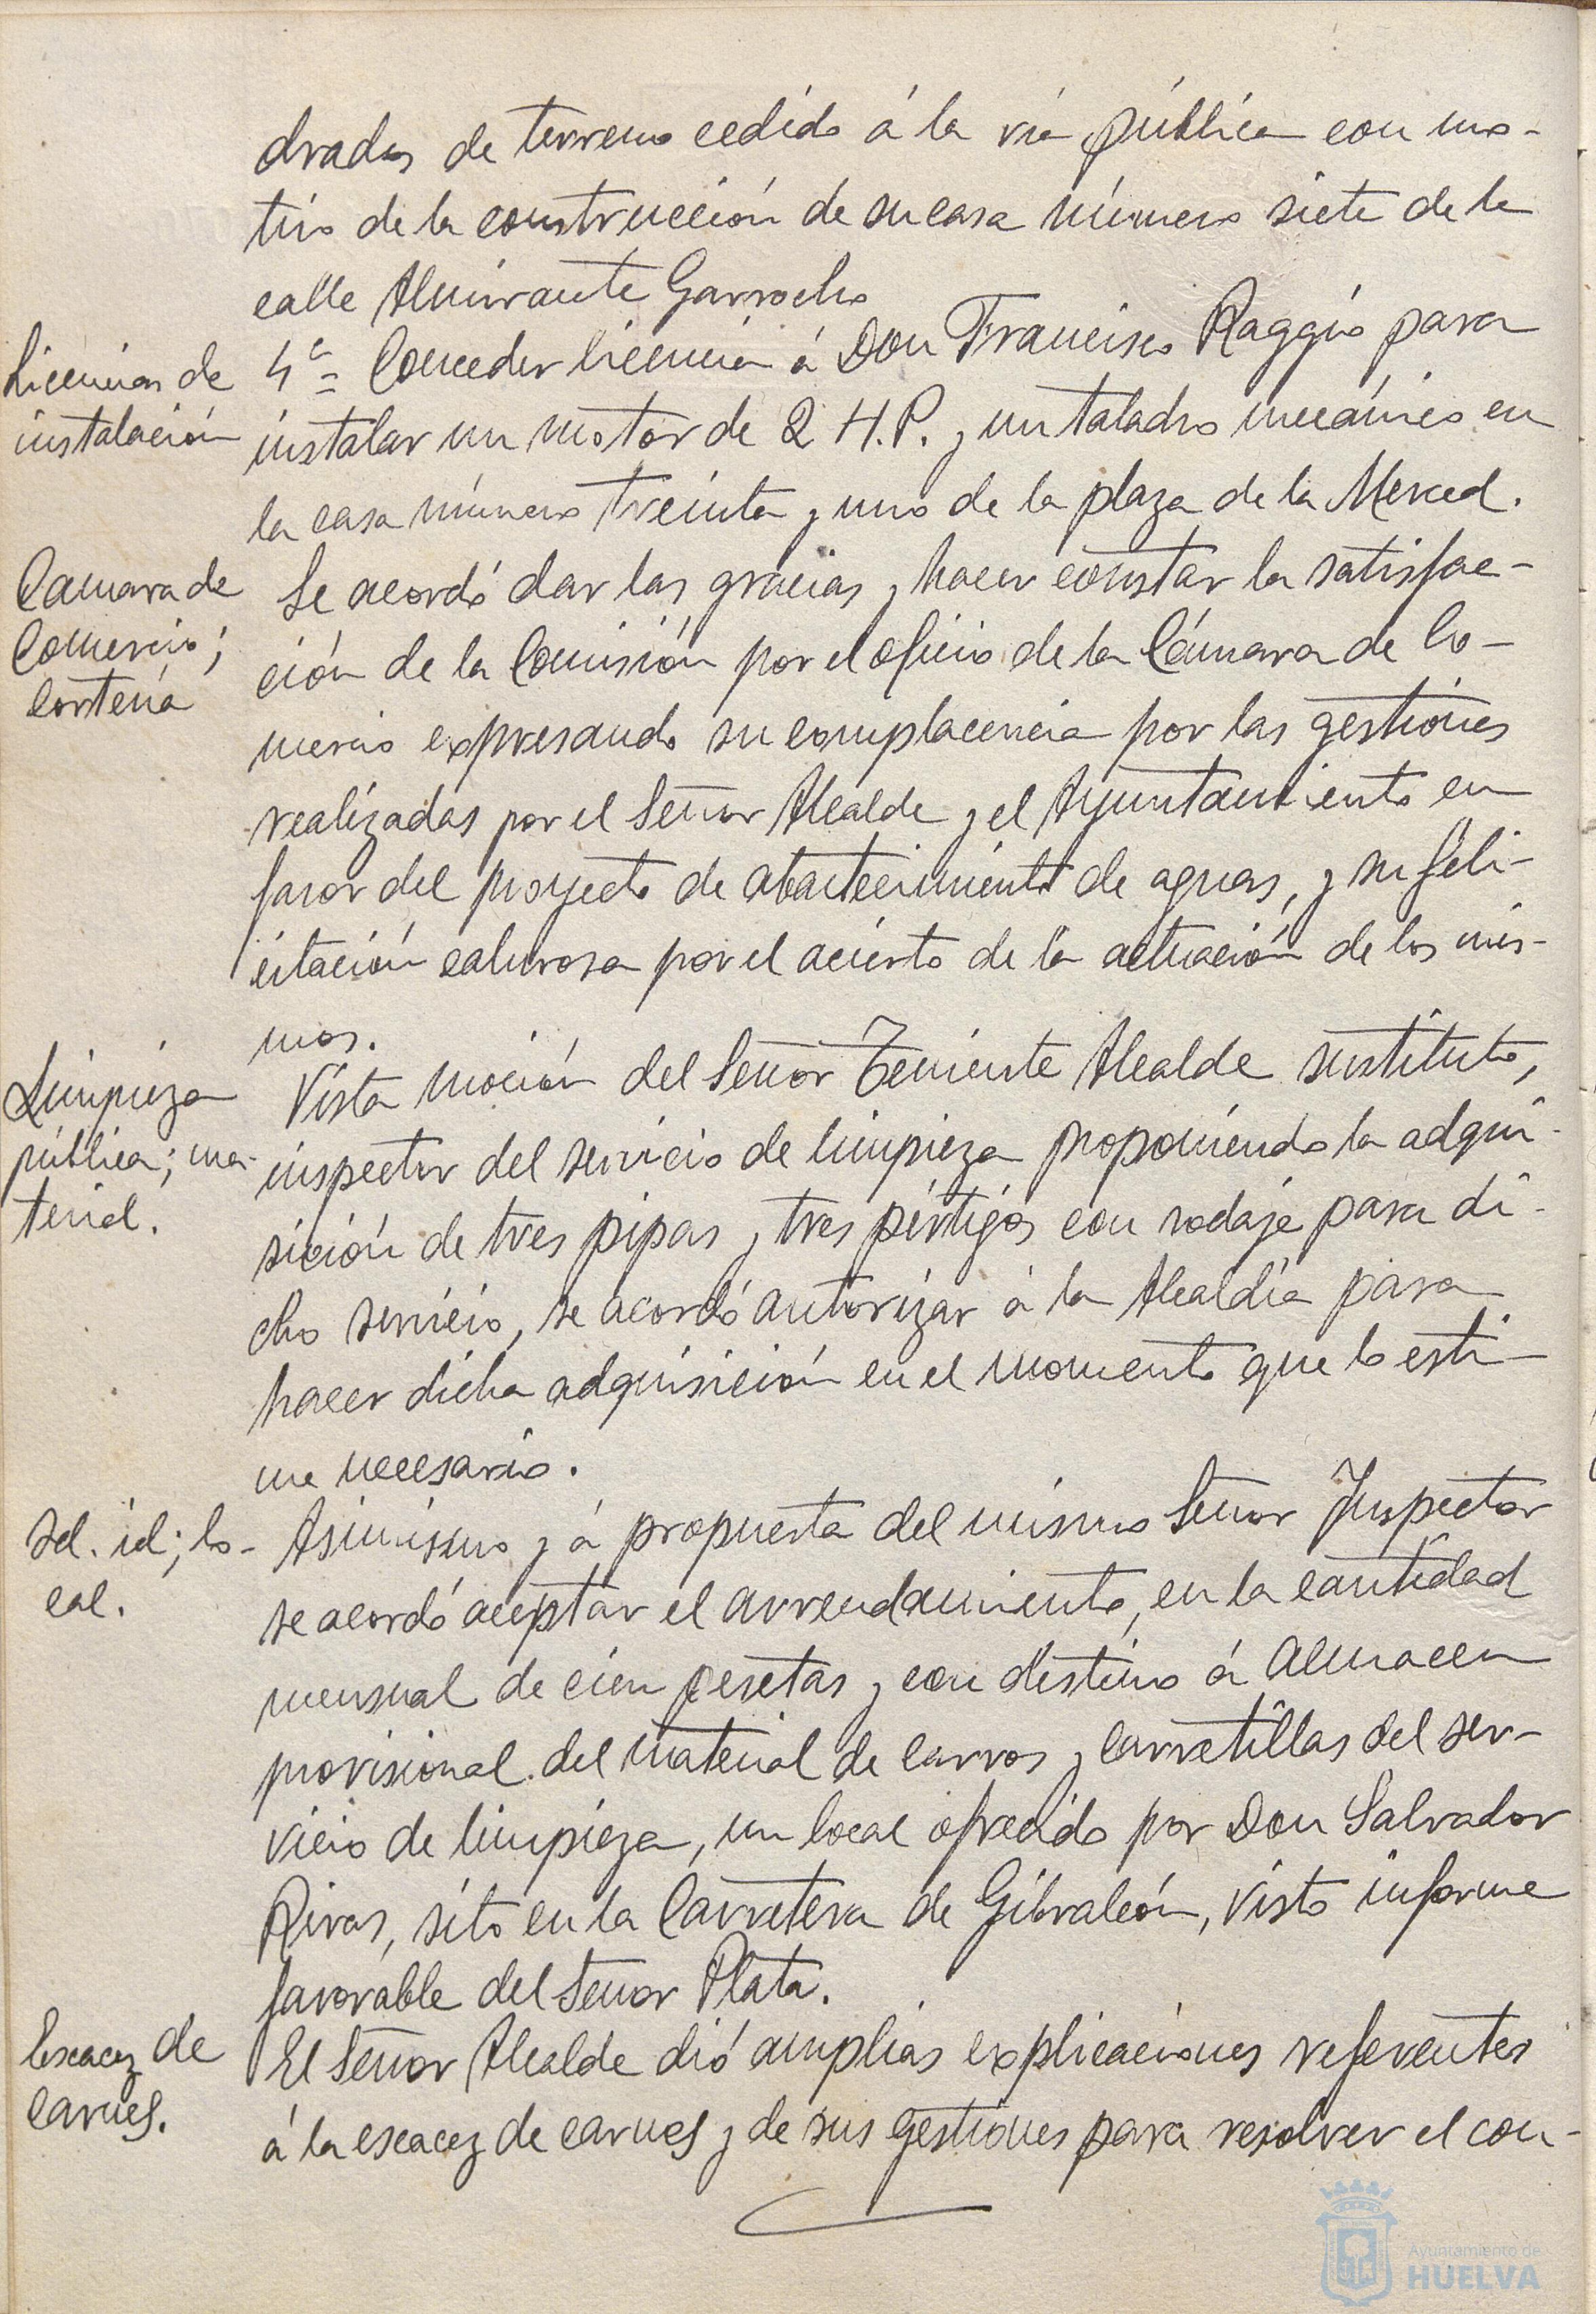 drados de terreno cedido á la vía pública con mo-
tivo de la construcción de su casa número siete de la
calle Almirante Garrocho
Licencias de
instalación
4ª = Conceder licencia á Don Francisco Raggio para
instalar un motor de 2 H.P. y un taladro mecánico en
la casa número treinta y uno de la plaza de la Merced.
Camara de
Comercio;
cortesía
Se acordó dar las gracias y hacer constar la satisfac-
ción de la Comisión por el oficio de la Cámara de Co-
mercio expresando su complacencia por las gestiones
realizadas por el Señor Alcalde y el Ayuntamiento en
favor del proyecto de abastecimiento de aguas, y su feli-
citación calurosa por el acierto de la actuación de los mis-
mos.
Limpieza
pública; ma-
terial.
Vista moción del Señor Teniente Alcalde sustituto,
inspector del servicio de limpieza proponiendo la adqui-
sición de tres pipas y tres pértigos con rodaje para di-
cho servicio, se acordó autorizar á la Alcaldía para
hacer dicha adquisición en el momento que lo esti-
me necesario.
Id. id; lo-
cal.
Asimismo y á propuesta del mismo Señor Inspector
se acordó aceptar el arrendamiento, en la cantidad
mensual de cien pesetas y con destino á almacen
provisional del material de carros y carretillas del ser-
vicio de limpieza, un local ofrecido por Don Salvador
Rivas, sito en la Carretera de Gibraleón, visto informe
favorable del Señor Plata.
Escacez de
carnes.
El Señor Alcalde dió amplias explicaciones referentes
á la escacez de carnes y de sus gestiones para resolver el con-
Ayuntamiento de
HUELVA